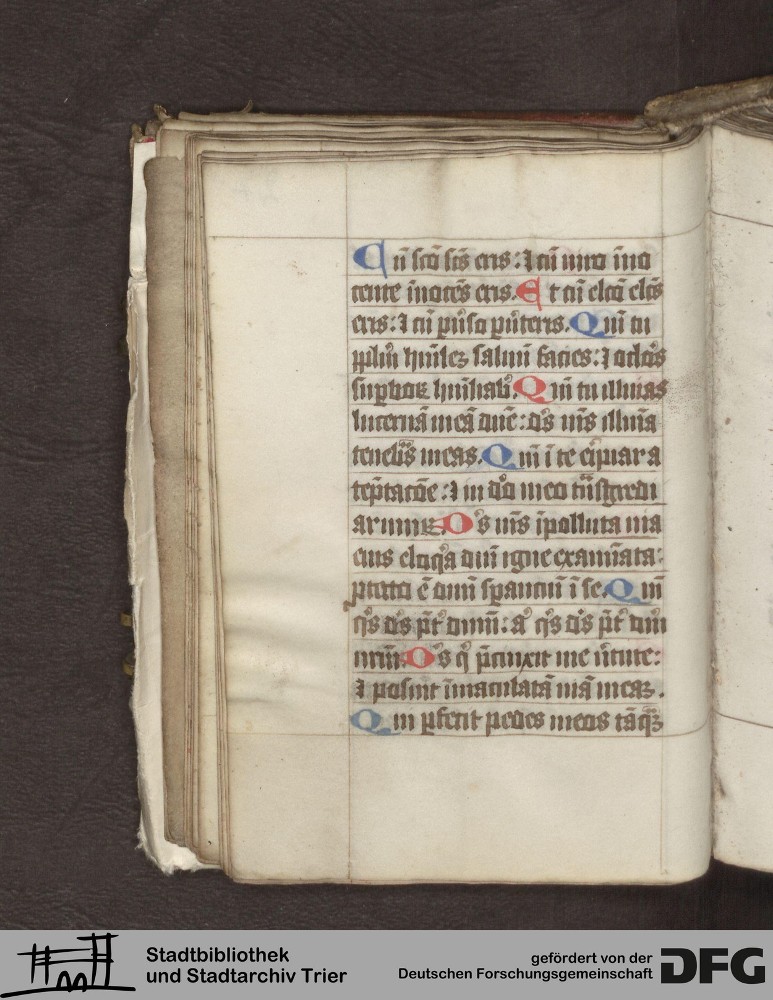 Cū scō scs eris: ⁊ cū viro īno
cente īnocēs eris. Et cū elcō elcs
eris: ⁊ cū pũso puteris. Qm̄ tu
pplm̄ hūilez saluū facies: ⁊ oclos
suꝑboꝝ hūiliab'. Qm̄ tu illuīas
lucernā meā dne: ds ms illuīa
tenebs meas. Qm̄ ī te eripiar a
tēptacōe: ⁊ in dō meo tūsgredi
ar murū. Ds ms īpolluta via
eius eloqͥa dni igne examiata:
ꝓtcto ē omī sꝑanciū ī se. Qm̄
qͥs ds pt dnm̄: aͭ qͥs ds pt dm̄
nrm̄. Ds qͥ p̄cinxit me v̄tute:
⁊ posuit īmaculatā viā meaz.
Qui ꝑfecit pedes meos tāqͣ
Stadtbibliothek
und Stadtarchiv Trier
gefördert von der
Deutschen Forschungsgemeinschaft
DFG